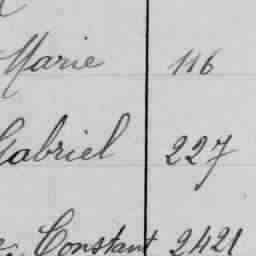 Marie 116
Gabriel 227
Constant 2421